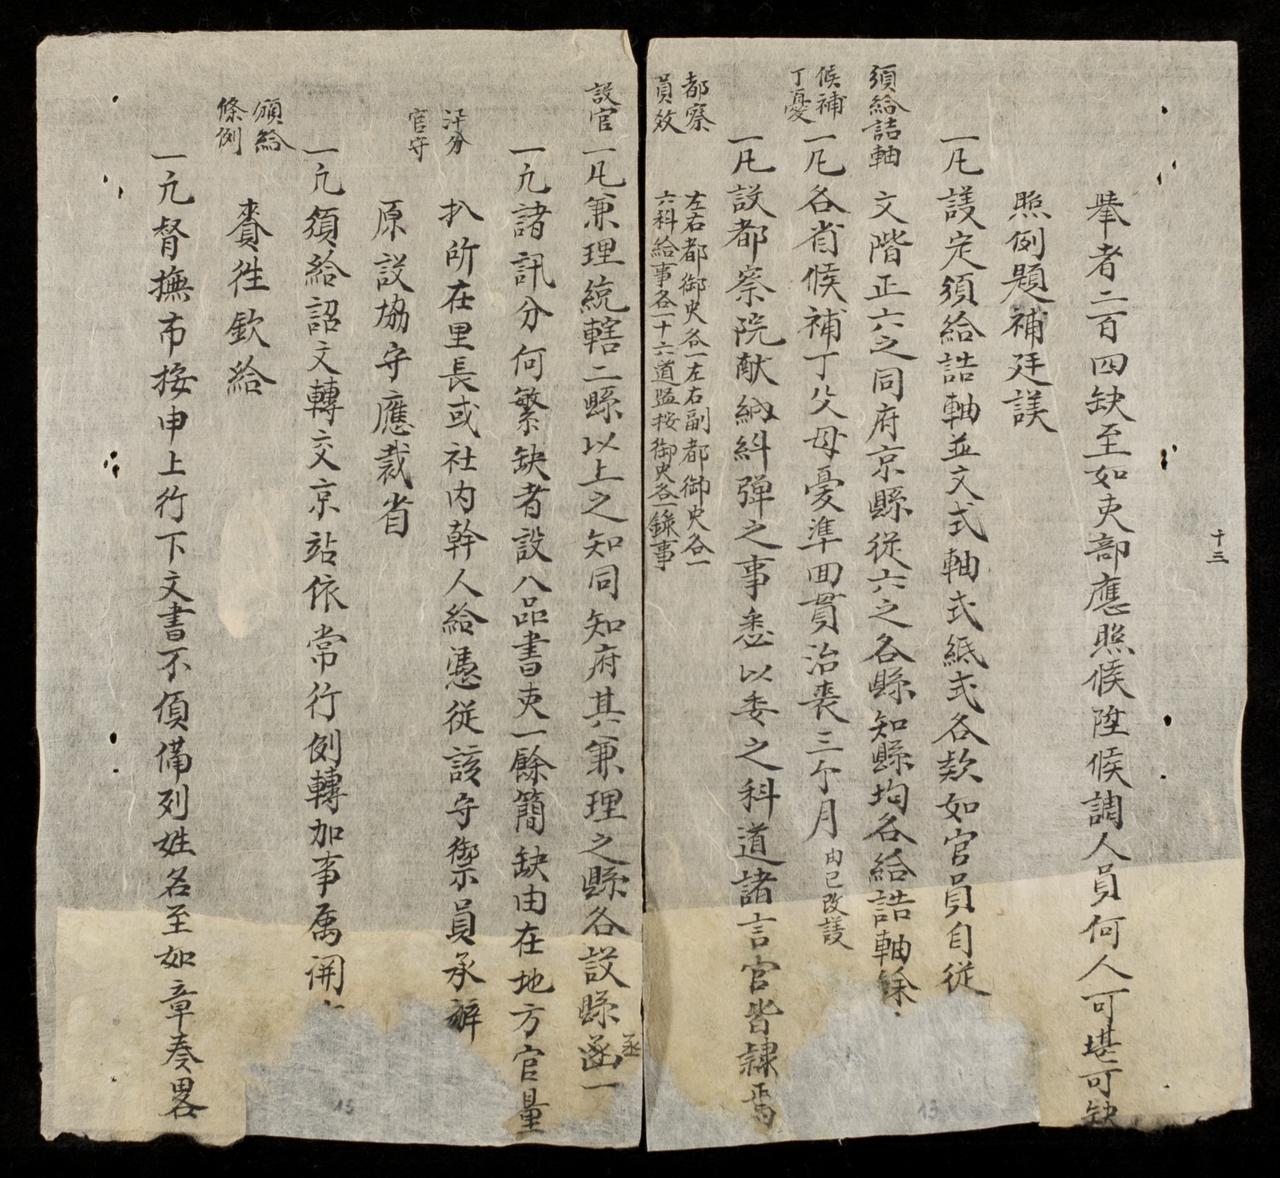 十三
舉者二百四缺至如吏部應照候陞候調人員何人可堪可缺
照例題補廷議
一凡議定須給誥軸並文式軸式紙式各欵如官員自従
須給誥軸
文階正六之同府京縣従六之各縣知縣均各給誥軸
候補
丁憂
一凡各省候補丁父母憂準回貫治喪三个月
由已改議
一凡設都察院献納糾弹之事悉以委之科道諸言官皆隷焉
都察
員效
左右都御史各一左右副都御史各一
六科給事各一十六道監按御史各一錄事
設官
一凡兼理統轄二縣以上之知同知府其兼理之縣各設縣一
丞
一凢諸訊分何繁缺者設八品書吏一餘簡缺由在地方官量
扒所在里長或社內幹人給憑従該守禦員承辦
汛分
官守
原設協守應裁省
一凢須給詔文轉交京站依常行例轉加事属開
頒給
條例
賫徃欽給
一凢督撫布按申上行下文書不須備列姓名至如章奏畧
13
13